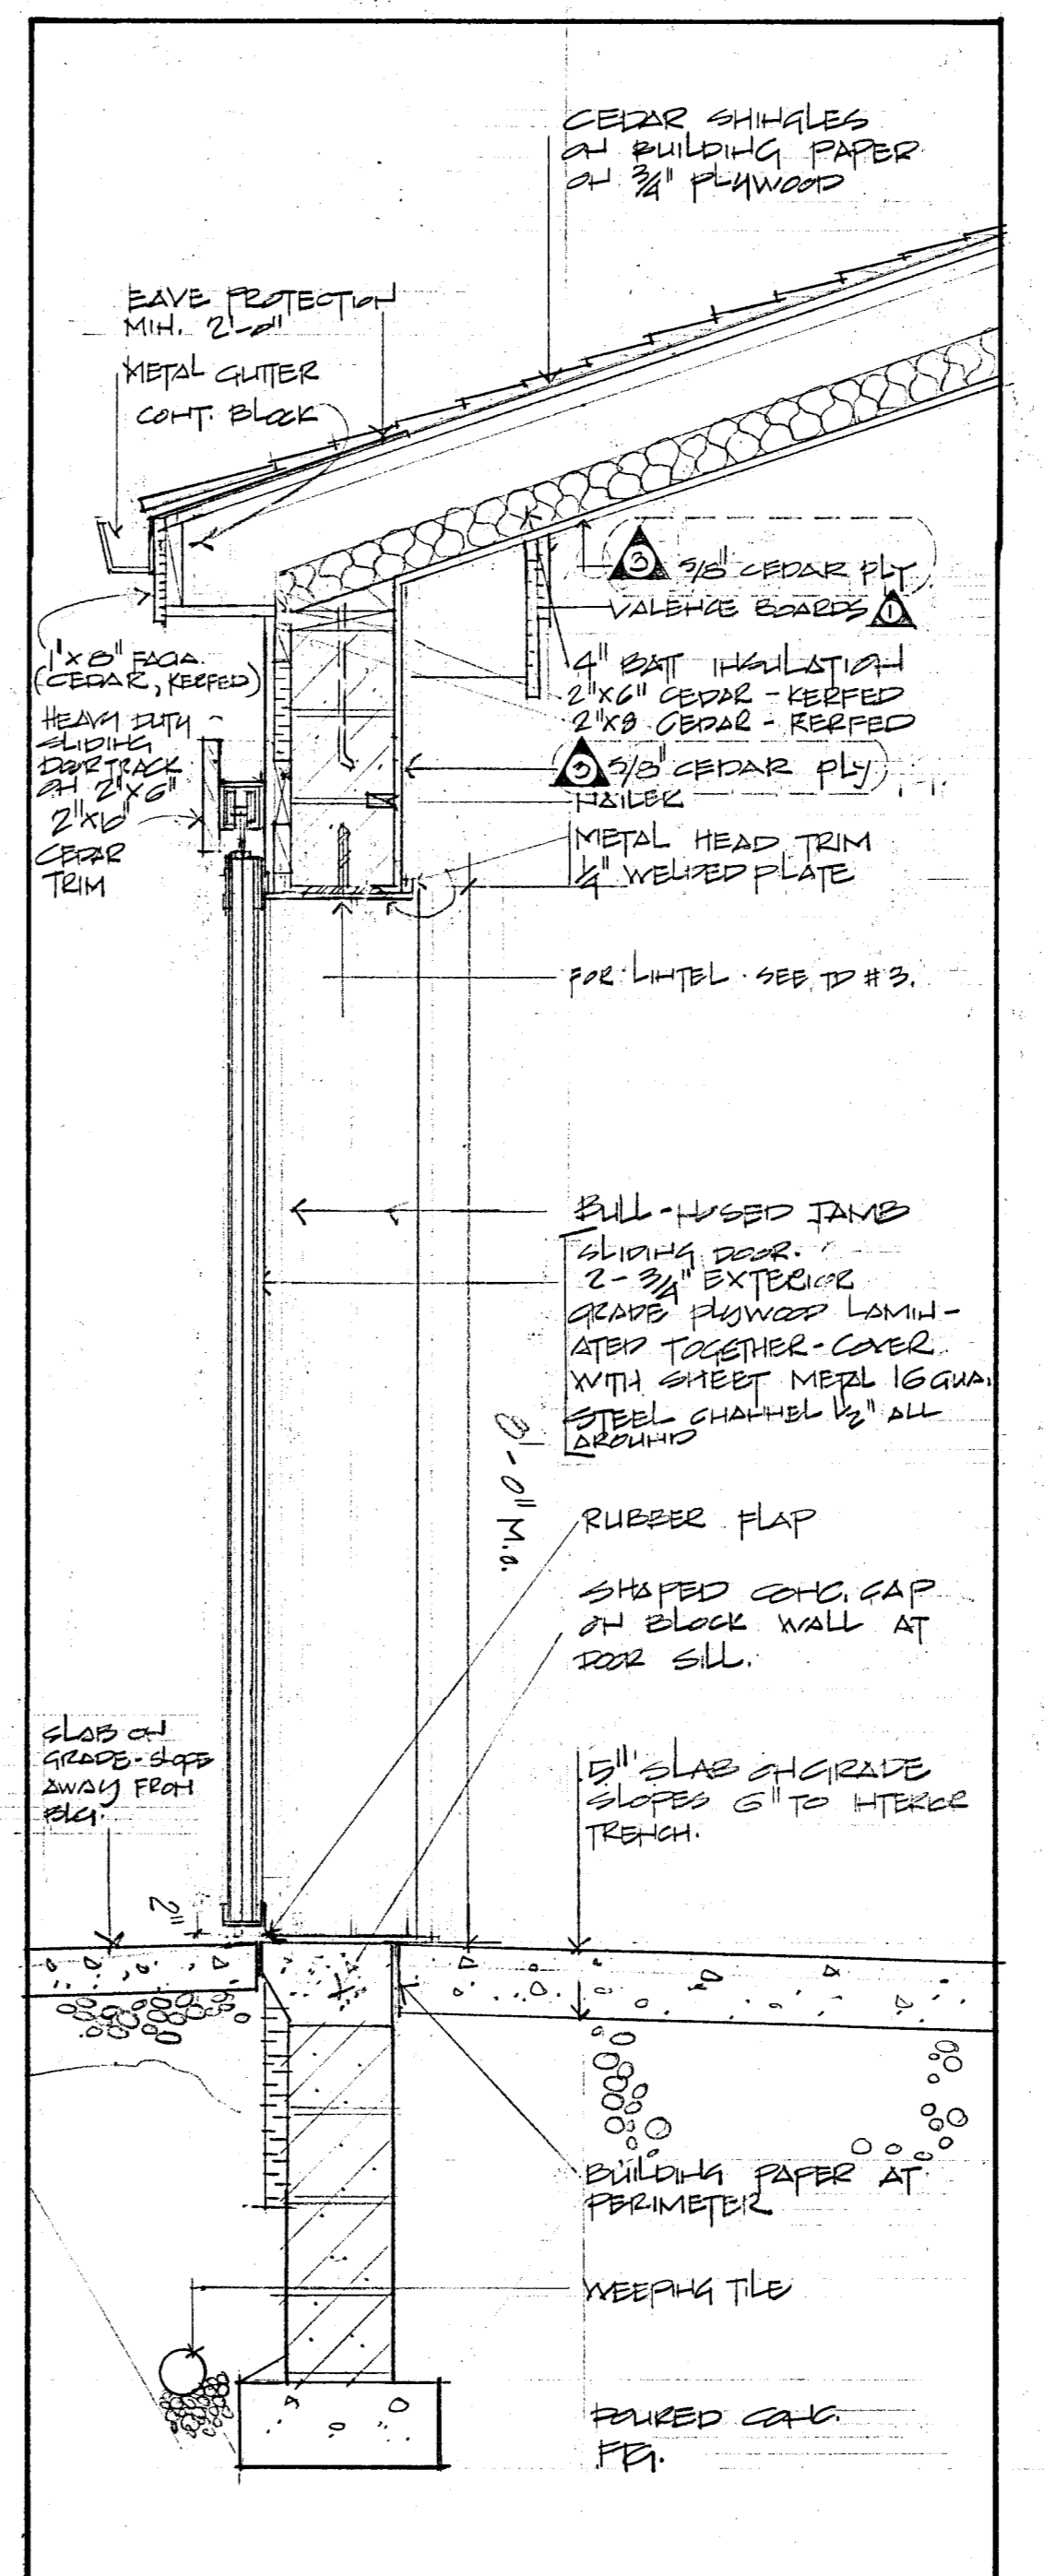 CEDAR SHINGLES
ON BUILDING PAPER
ON 3/4" PLYWOOD
EAVE PROTECTION
MIN. 2'-0"
METAL GUTTER
CONT. BLOCK
3 5/8" CEDAR PLY
VALENCE BOARDS 1
4" BATT INSULATION
2"X6" CEDAR - KERFED
2"X8 CEDAR - KERFED
3 5/8" CEDAR PLY
NAILER
METAL HEAD TRIM
1/4" WELDED PLATE
1"X8" FACIA.
(CEDAR, KERFED)
HEAVY DUTY
SLIDING
DOOR TRACK
ON 2"X6"
2"X6"
CEDAR
TRIM
FOR LINTEL. SEE TD #3.
BULL-NOSED JAMB
SLIDING DOOR.
2- 3/4" EXTERIOR
GRADE PLYWOOD LAMIN-
ATED TOGETHER-COVER
WITH SHEET METAL 16 GUA.
STEEL CHANNEL 1 1/2" ALL
AROUND
8'-0" M.O.
RUBBER FLAP
SHAPED CONC. CAP
ON BLOCK WALL AT
DOOR SILL.
SLAB ON
GRADE-SLOPE
AWAY FROM
BLG.
5" SLAB ON GRADE
SLOPES 6" TO INTERIOR
TRENCH.
2"
BUILDING PAPER AT
PERIMETER
WEEPING TILE
POURED CONC.
FTG.